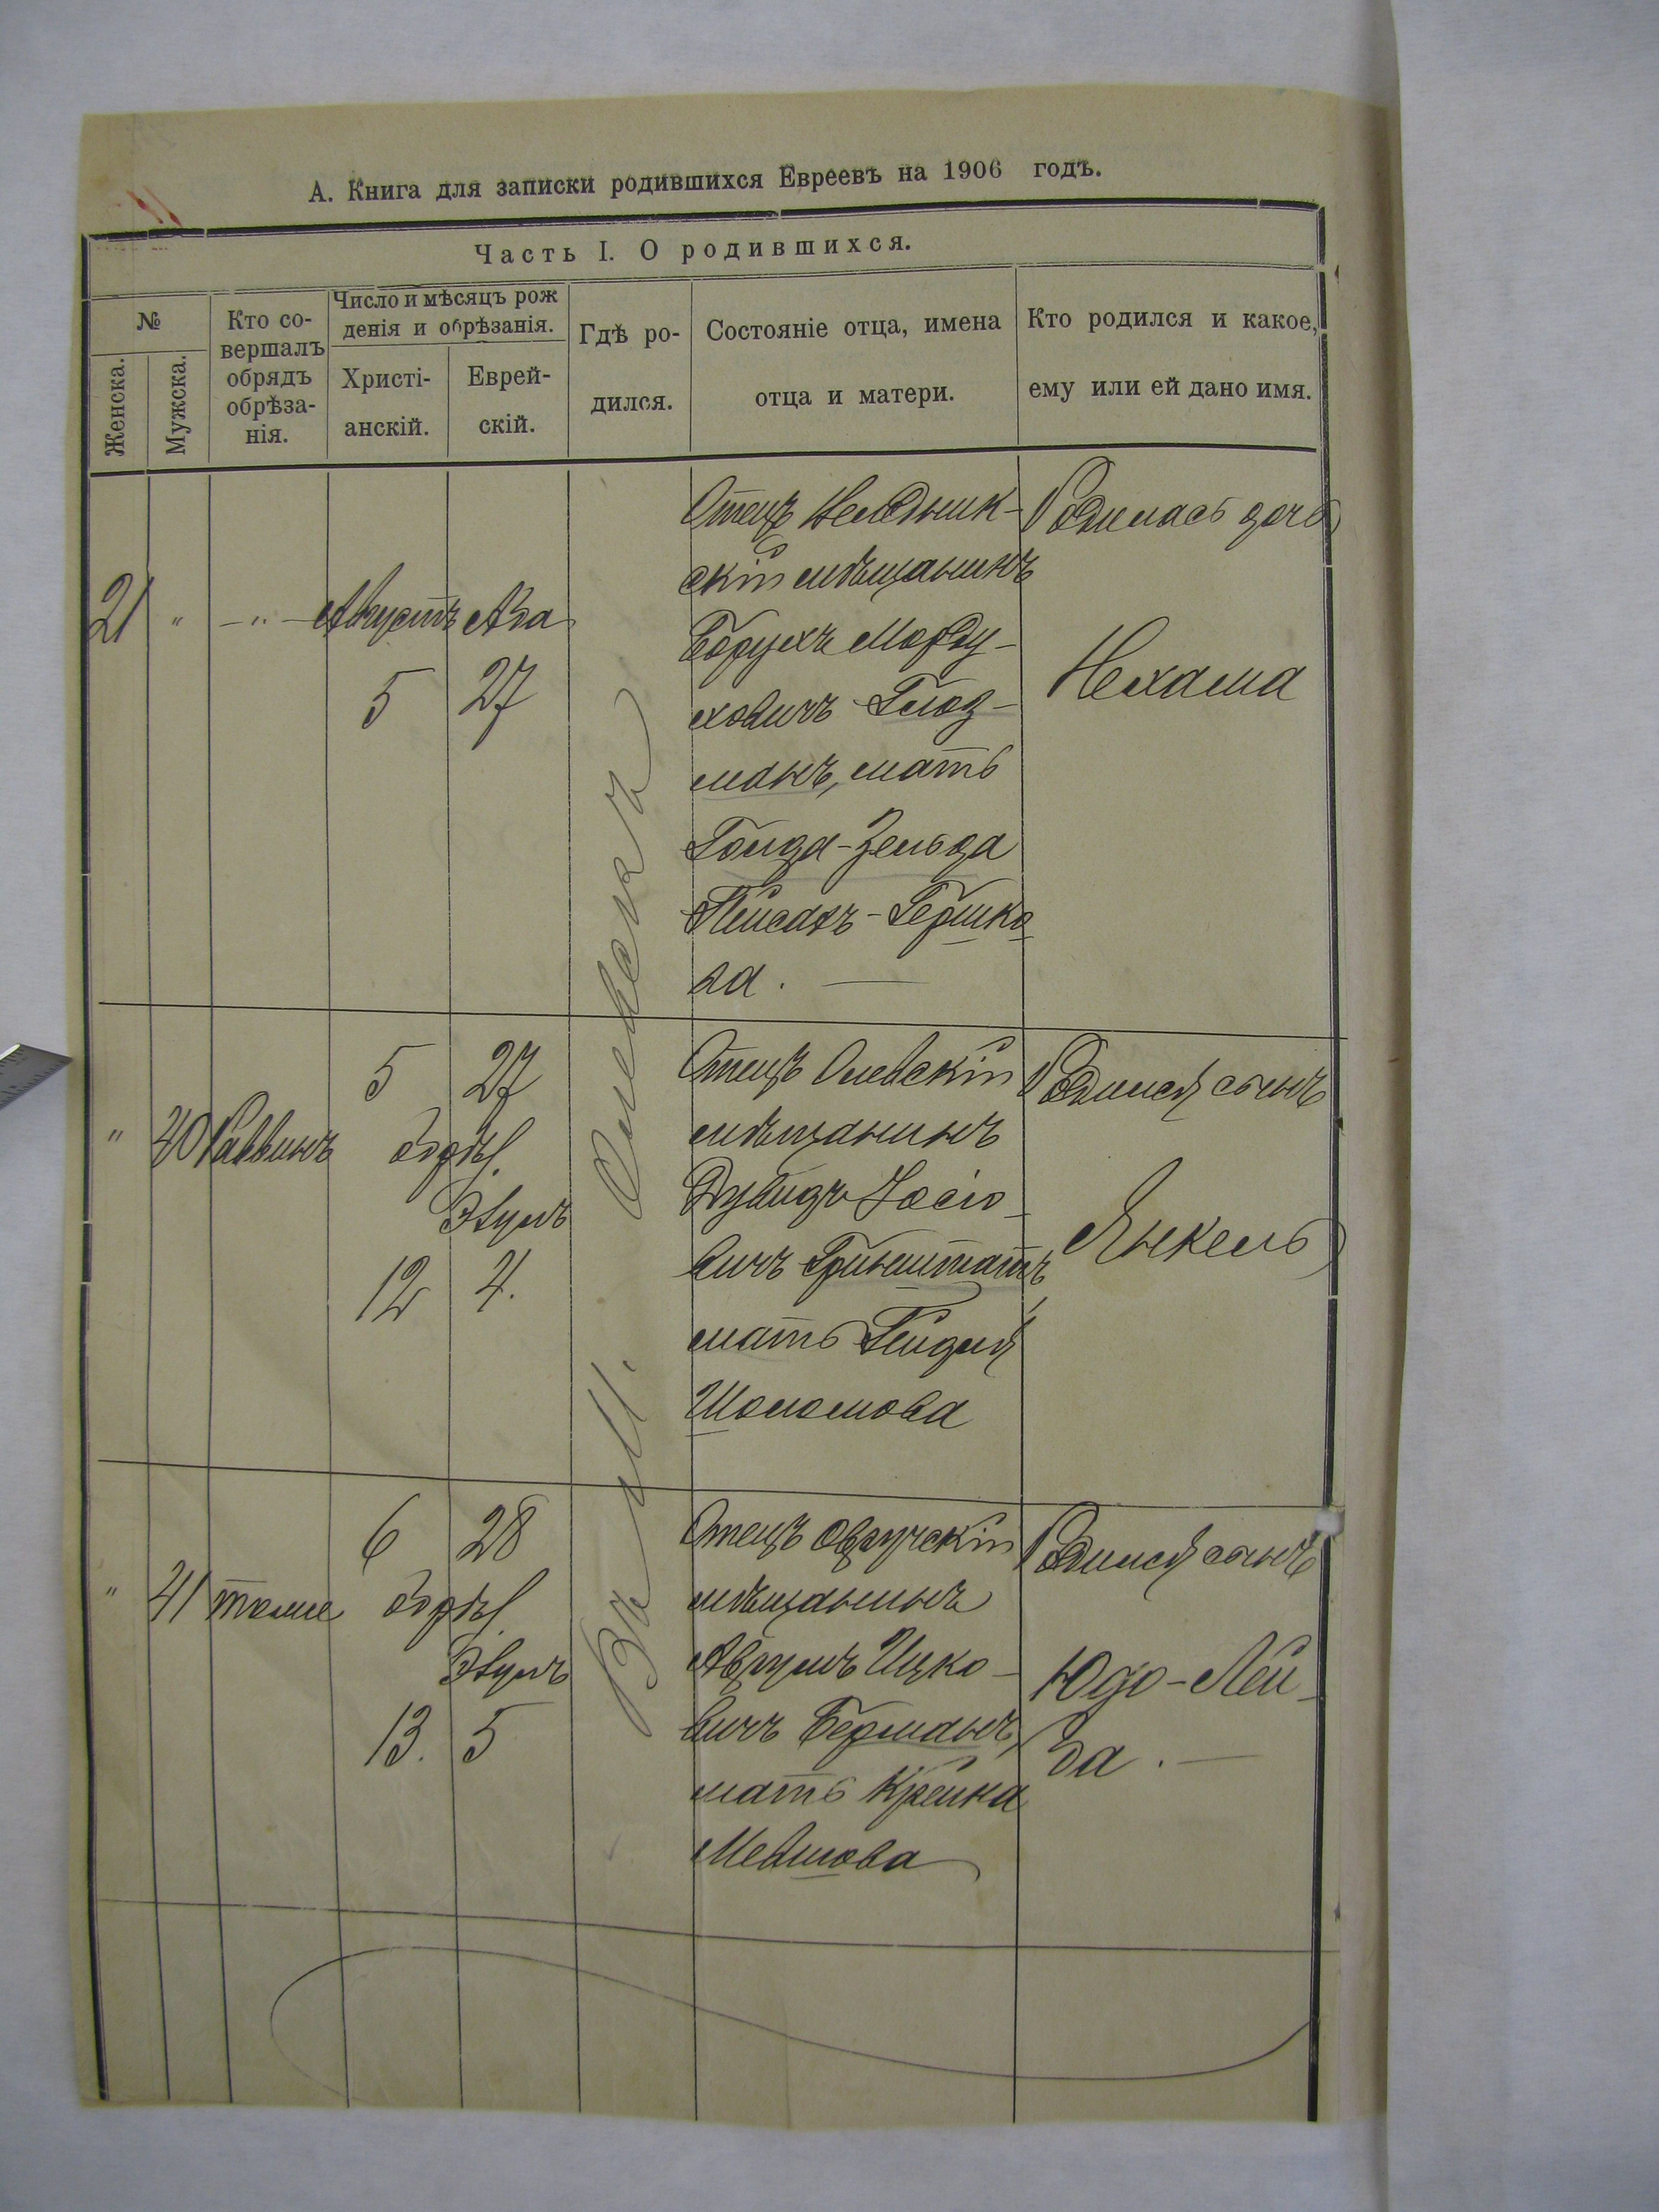 А. Книга для записки родившихся Евреевъ на 1906 годъ.
Часть I. О родившихся.
№
Женска.
Мужска.
Кто со-
вершалъ
обрядъ
обрѣза-
нія.
Число и мѣсяцъ рож
денія и обрѣзанія.
Христі-
анскій.
Еврей-
скій.
Гдѣ ро-
дился.
Состояніе отца, имена
отца и матери.
Кто родился и какое,
ему или ей дано имя.
21 " -"- Августъ Ава
5 27
Въ м. Олевскѣ
Отецъ
скій мѣщанинъ
Борухъ Морду-
ховичъ Глоз-
манъ, мать
Голда-Зельда
Пейсахъ-Гершко
ва. —
Родилась дочь
Нехама
" 40 Раввинъ
5 27
обрѣз.
Элулъ
12 4.
Отецъ Олевскій
мѣщанинъ
Дувидъ Іосіо-
вичъ Гринштатъ,
мать Гейдля
Шоломова
Родился сынъ
Янкель
" 41 тоже
6 28
обрѣз.
Элулъ
13. 5
Отецъ Овручскій
мѣщанинъ
Аврумъ Ицко-
вичъ Берманъ,
мать Крейна
Мевшова
Родился сынъ
Юдо-Лей-
ба. —